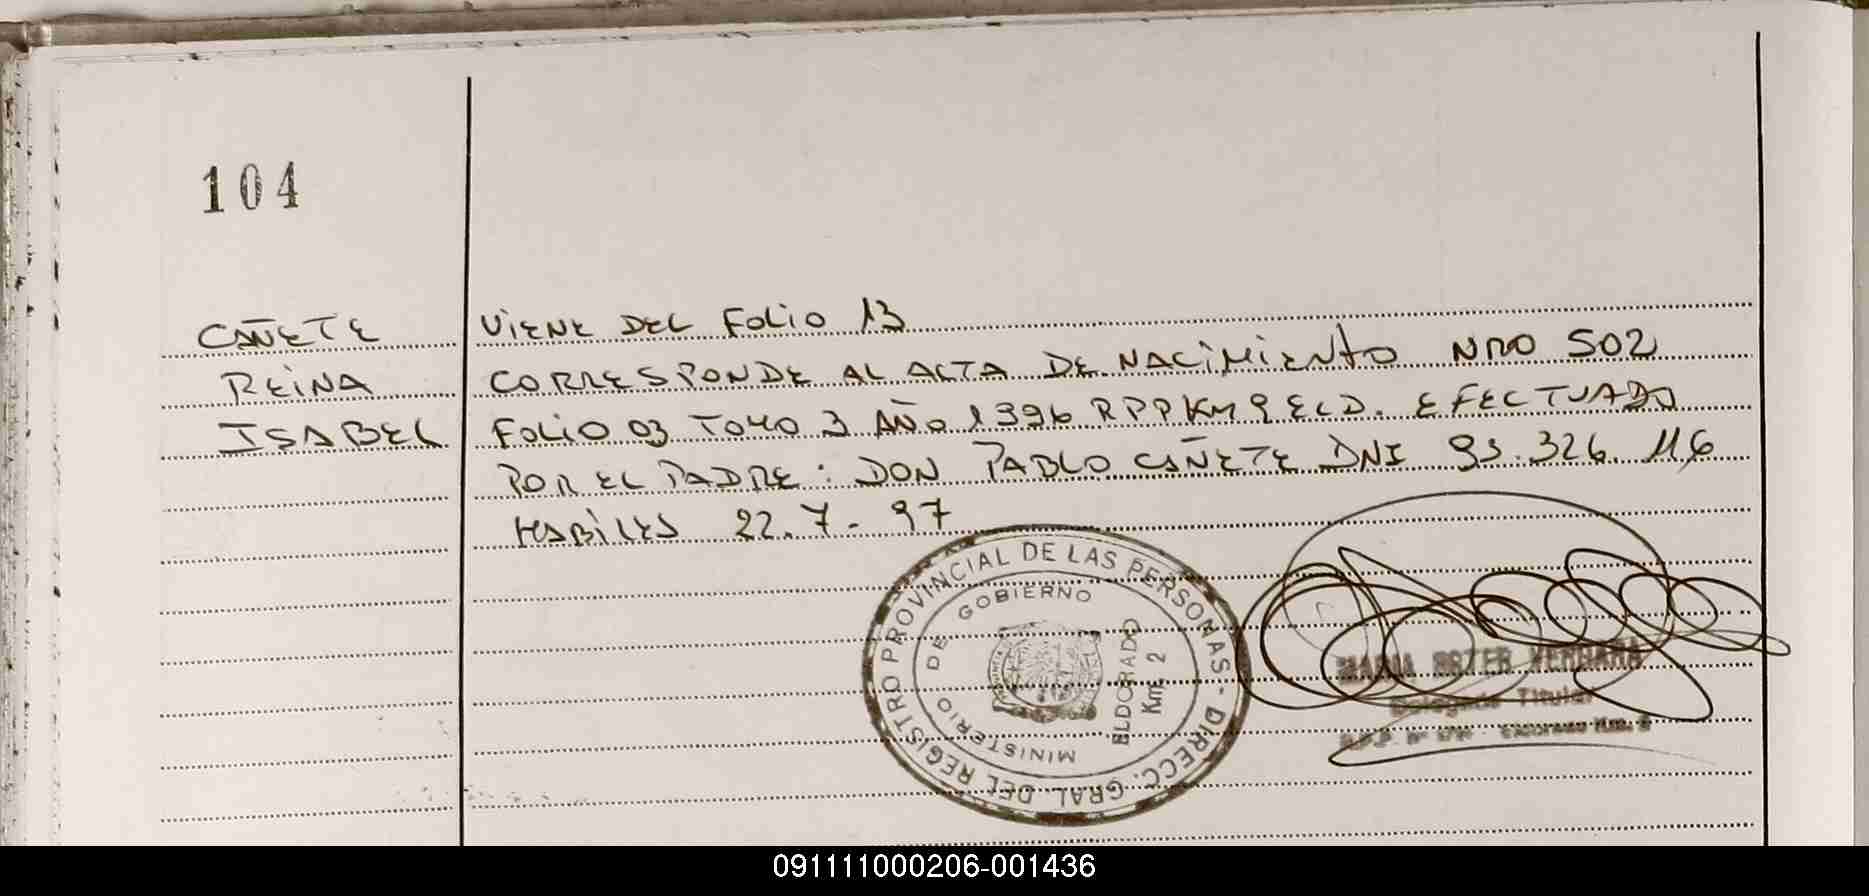 104
CAÑETE
REINA
ISABEL
VIENE DEL FOLIO 13
CORRESPONDE AL ACTA DE NACIMIENTO NRO 502
FOLIO 03 TOMO 3 AÑO 1996 RPPKM9 ELD. EFECTUADO
POR EL PADRE: DON PABLO CAÑETE DNI 93.326.116
HABILES 22.7.97
DIRECC. GRAL DEL REGISTRO PROVINCIAL DE LAS PERSONAS -
MINISTERIO DE GOBIERNO
ELDORADO
Kmt. 2
MARIA ESTER VERGARA
Delegada Titular
091111000206-001436